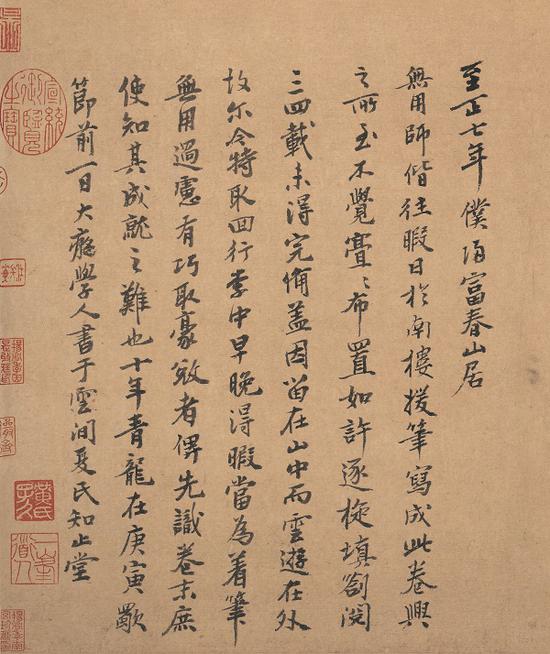 至正七年僕歸富春山居
無用師偕往暇日於南樓援筆寫成此卷興
之所至不覺亹亹布置如許逐旋填劄閱
三四載未得完備蓋因留在山中而雲遊在外
故尔今特取回行李中早晚得暇當為着筆
無用過慮有巧取豪敚者俾先識卷末庶
使知其成就之難也十年青龍在庚寅歜
節前一日大癡學人書于雲間夏氏知止堂
宣統御覽之寶
黃氏子久
一峯道人